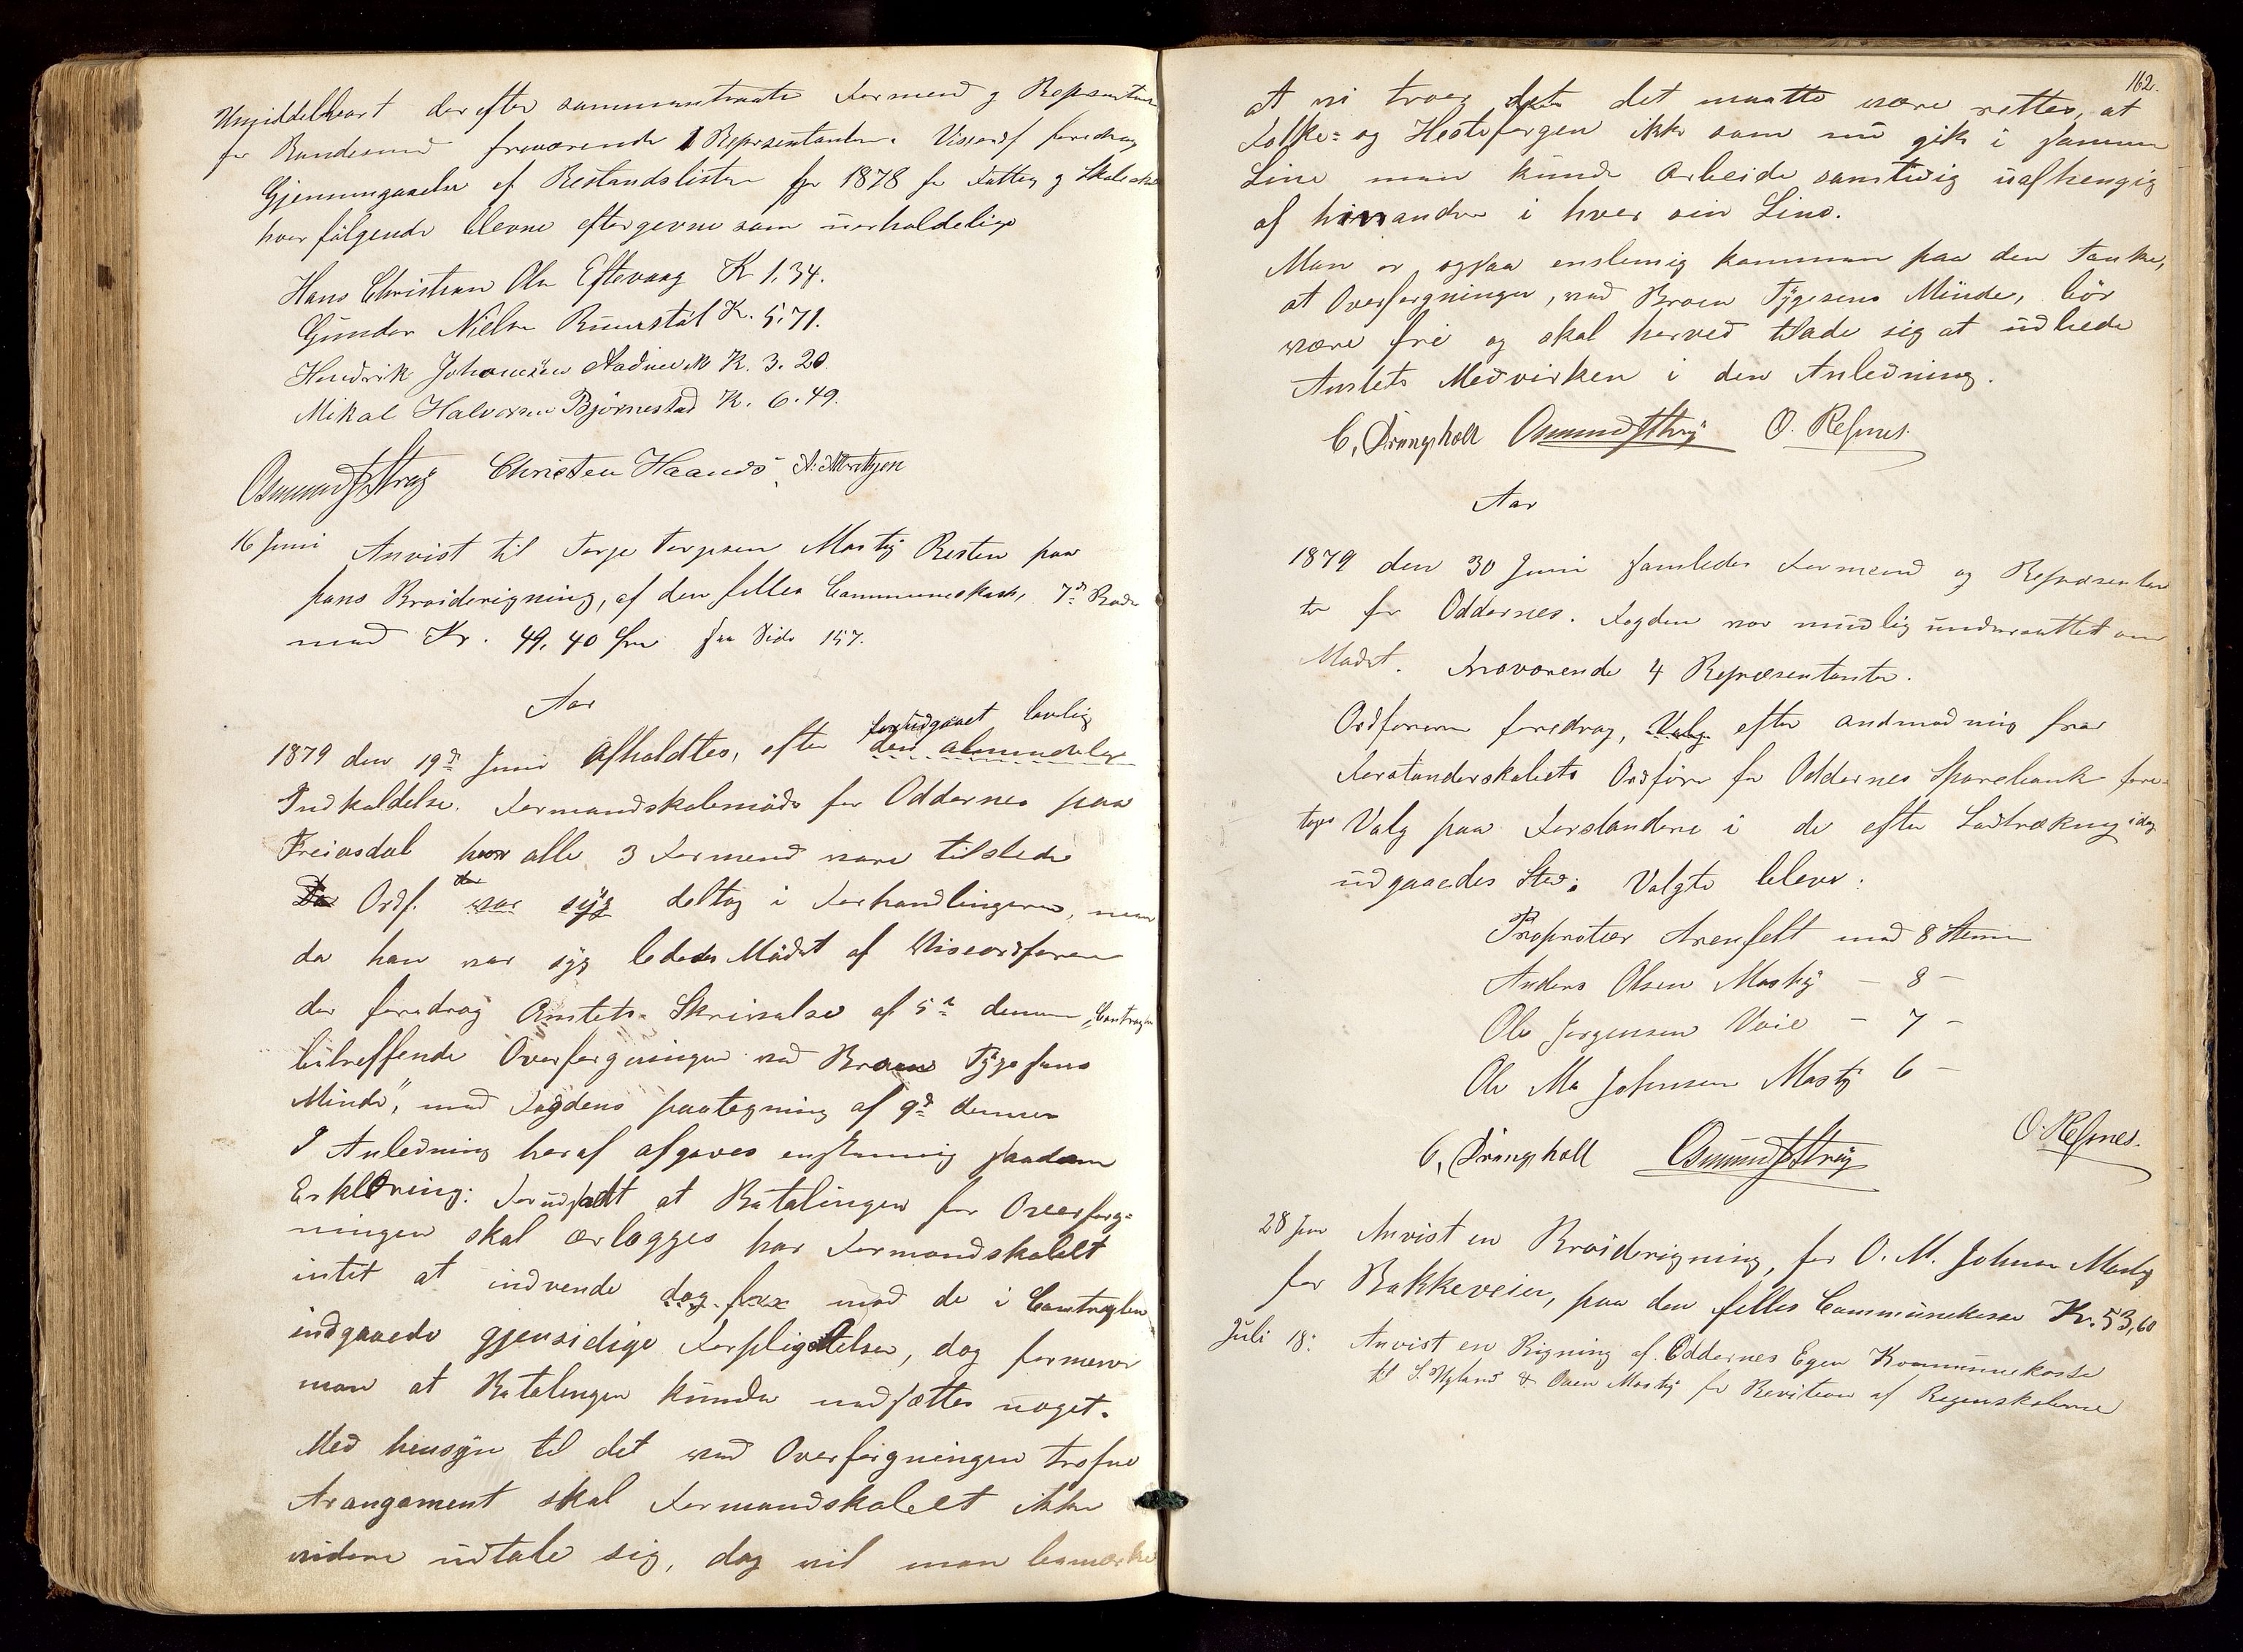 Umiddelbart derefter sammentraate Formend og Repsentan
for Randesund frværende 1 Represintanter. Viseordf foredrog
Gjennemgaaelse af Restandslisten for 1878 for Fattig og Skole
hvor følgende bleve eftergevne som uerholdelige
Hans Christian Olsn Eftevaag K 1,34.
Gunder Nielsn K. 5,71.
Hendrik Johansen K. 3. 20.
Mikal Halvorsen Bjørnestad K. 6. 49.
Osmund Strag Christen Haanes
16 Juni Anvist til Terje Terjesen Mosby Resten paa
hans Veiderigning, af den felles Communekasse, 7de Rode
med Kr. 49, 40 fra Side 157.
Aar
1879 den 19de Juni Afholdtes, efter den almindelige forudgaaet lovlig
Indkaldelse. Formandskabsmøde for Oddernes paa
Freiasdal hvor alle 3 Formend vare tilstede
Da Ordf. der var syg deltog i Forhandlingerne, men
da han var syg lededes Mødet af Viseordføren
der foredrog Amtets Skrivelse af 5te dennes, Contragten
bitreffende Overfergningen ved Broen Tygesens
Minde", med Fogdens paategning af 9de dennes
I Anledning heraf afgaves enstemmig saadan
Erklæring: Forudsadt at Betalingen for Overferg=
ningen skal ærlegges har Formandskabet
intet at indvende dog mod de i Contragten
indgaaede gjensidige Forpligtelser, dog formener
man at Betalingen kunde nedsettes noget.
Med hensyn til det ved Overfergningen trofne
Arangement skal Formandskabet ikke
videre udtale sig, dog vil man bemærke
162.
at vi troer det det maatte være rettes, at
Folke= og Hestefergen ikke som nu gik i samme
Line men kunde Arbeide samtidig uafhengig
af hinanden i hver sin Line.
Man er ogsaa enstemig kommen paa den Tanke,
at Overfergningen, ved Broen Tygesens Minde, bør
være fri og skal herved tillade sig at udbede
Amtets Medvirken i den Anledning.
C. Drangsholt Osmund Strag O. Refsnes.
Aar
1879 den 30 Juni samledes Formend og Represæntan
ter for Oddernes. Fogden var mundlig underrettet om
Mødet. Frævorende 4 Repræsentanter.
Ordføreren foredrog, Valg efter andmodning fra
Forstanderskabets Ordfører for Oddernes Sparebank fore=
toges Valg paa Forstandere i de efter Lodtrækning idag
udgaaedes Sted. Valgte bleve:
Propriotær Arenfelt med 8 Stemm
Anders Olsen Mosby – 8 –
Ole Jørgensen Voie – 7 –
Ole M Johnsen Mosby 6 –
C. Drangsholt Osmund Strag O. Refsnes.
28 Jun Anvist en Veiderigning, for O. M. Johnsn Mosby
for Bakkeveien, paa den felles Communekasse Kr. 53,60
Juli 18: Anvist en Rigning af Oddernes Egen Kommunekasse
til S. Nyland & Oven Mosby for Revition af Regenskaberne